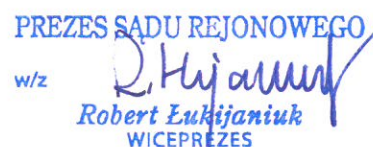 PREZES SĄDU REJONOWEGO
w/z
Robert Łukijaniuk
WICEPREZES